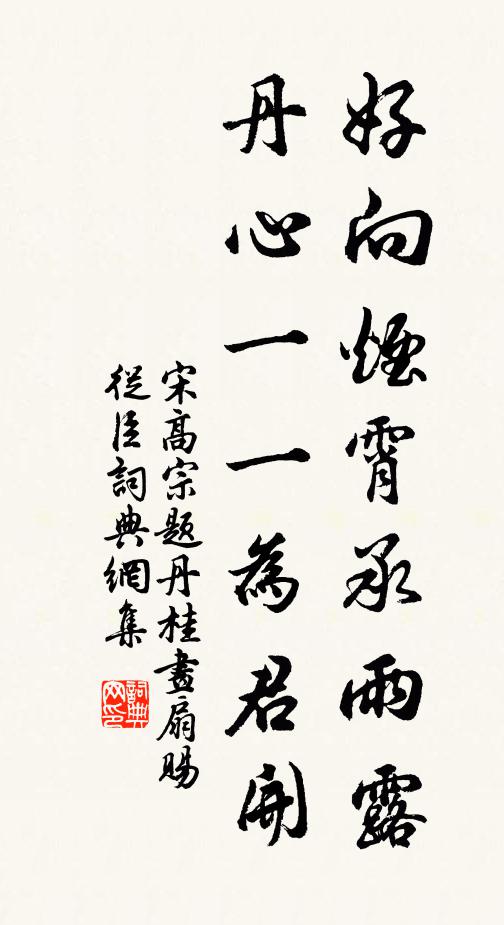 好向煙霄承雨露
丹心一一為君開
宋高宗題丹桂畫扇賜
從臣詞典網集
詞典網印